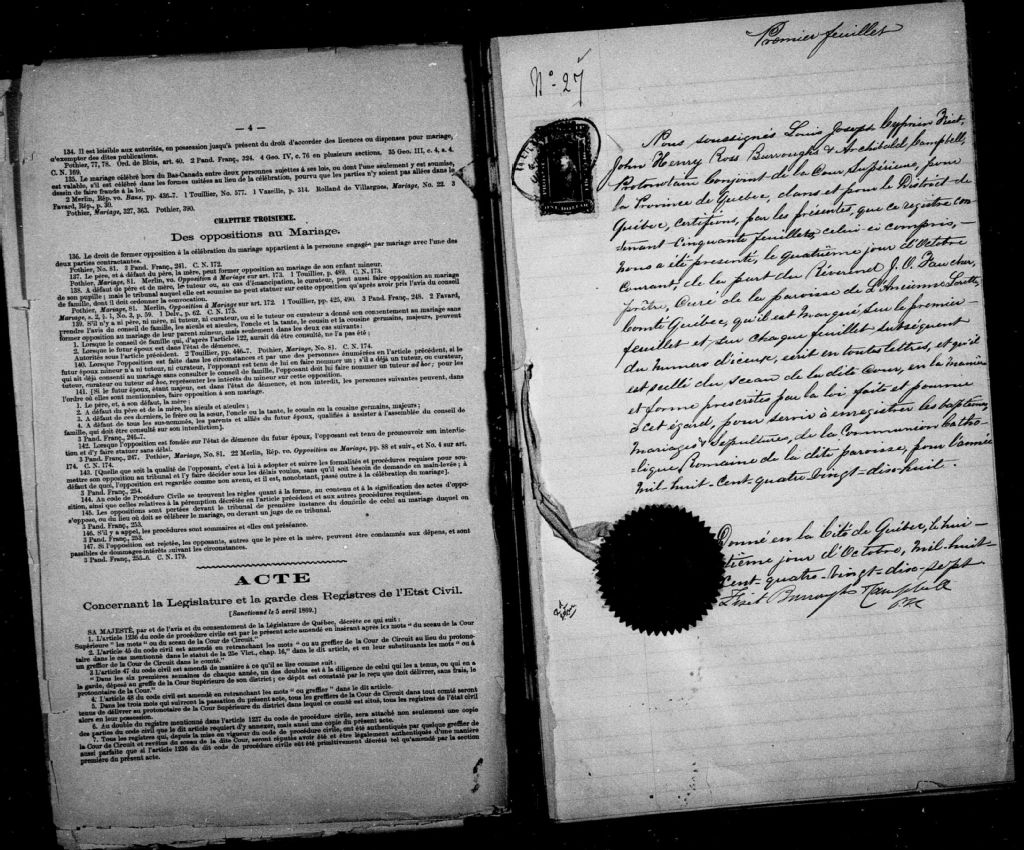 — 4 —
134. Il est loisible aux autorités, en possession jusqu'à présent du droit d'accorder des licences ou dispenses pour mariage,
d'exempter des dites publications.
Pothier, 77, 78. Ord. de Blois, art. 40. 2 Pand. Franç., 324. 4 Geo. IV, c. 76 en plusieurs sections. 35 Geo. III, c. 4, s. 4.
C. N. 169.
135. Le mariage célébré hors du Bas-Canada entre deux personnes sujettes à ses lois, ou dont l'une seulement y est soumise,
est valable, s'il est célébré dans les formes usitées au lieu de la célébration, pourvu que les parties n'y soient pas allées dans le
dessein de faire fraude à la loi.
2 Merlin, Rép. vo. Bans, pp. 436-7. 1 Touillier, No. 577. 1 Vazille, p. 314. Rolland de Villargues, Mariage, No. 22. 3
Favard, Rép., p. 39.
Pothier, Mariage, 327, 363. Pothier, 390.
CHAPITRE TROISIEME.
Des oppositions au Mariage.
136. Le droit de former opposition à la célébration du mariage appartient à la personne engagée par mariage avec l'une des
deux parties contractantes.
Pothier, No. 81. 3 Pand. Franç., 241. C. N. 172.
137. Le père, et à défaut du père, la mère, peut former opposition au mariage de son enfant mineur.
Pothier, Mariage, 81. Merlin, vo. Opposition à Mariage sur art. 173. 1 Touillier, p. 489. C. N. 173.
138. A défaut de père et de mère, le tuteur ou, au cas d'émancipation, le curateur, peut aussi faire opposition au mariage
de son pupille; mais le tribunal auquel elle est soumise ne peut statuer sur cette opposition qu'après avoir pris l'avis du conseil
de famille, dont il doit ordonner la convocation.
Pothier, Mariage, 81. Merlin, Opposition à Mariage sur art. 172. 1 Touillier, pp. 425, 490. 3 Pand. Franç. 248. 2 Favard,
Mariage, s. 2, § 1, No. 3, p. 59. 1 Delv., p. 62. C. N. 175.
139. S'il n'y a ni père, ni mère, ni tuteur, ni curateur, ou si le tuteur ou curateur a donné son consentement au mariage sans
prendre l'avis du conseil de famille, les aïeuls et aïeules, l'oncle et la tante, le cousin et la cousine germains, majeurs, peuvent
former opposition au mariage de leur parent mineur, mais seulement dans les deux cas suivants:
1. Lorsque le conseil de famille qui, d'après l'article 122, aurait dû être consulté, ne l'a pas été;
2. Lorsque le futur époux est dans l'état de démence.
Autorités sous l'article précédent. 2 Touillier, pp. 446-7. Pothier, Mariage, No. 81. C. N. 174.
140. Lorsque l'opposition est faite dans les circonstances et par une des personnes énumérées en l'article précédent, si le
futur époux mineur n'a ni tuteur, ni curateur, l'opposant est tenu de lui en faire nommer un; s'il a déjà un tuteur, ou curateur,
qui ait déjà consenti au mariage sans consulter le conseil de famille, l'opposant doit lui faire nommer un tuteur ad hoc; pour les
tuteur, curateur ou tuteur ad hoc, représenter les intérêts du mineur sur cette opposition.
141. [Si le futur époux, étant majeur, est dans l'état de démence, et non interdit, les personnes suivantes peuvent, dans
l'ordre où elles sont mentionnées, faire opposition à son mariage.
1. Le père, et, à son défaut, la mère;
2. A défaut du père et de la mère, les aïeuls et aïeules;
3. A défaut de ces derniers, le frère ou la sœur, l'oncle ou la tante, le cousin ou la cousine germains, majeurs;
4. A défaut de tous les sus-nommés, les parents et alliés du futur époux, qualifiés à assister à l'assemblée du conseil de
famille, qui doit être consulté sur son interdiction].
3 Pand. Franç., 246-7.
142. Lorsque l'opposition est fondée sur l'état de démence du futur époux, l'opposant est tenu de promouvoir son interdic-
tion et d'y faire statuer sans délai.
3 Pand. Franç., 247. Pothier, Mariage, No. 81. 22 Merlin, Rép. vo. Opposition au Mariage, pp. 88 et suiv., et No. 4 sur art.
174. C. N. 174.
143. [Quelle que soit la qualité de l'opposant, c'est à lui à adopter et suivre les formalités et procédures requises pour sou-
mettre son opposition au tribunal et l'y faire décider sous les délais voulus, sans qu'il soit besoin de demande en main-levée; à
défaut de quoi, l'opposition est regardée comme non avenue, et il est, nonobstant, passé outre à la célébration du mariage].
3 Pand. Franç., 254.
144. Au code de Procédure Civile se trouvent les règles quant à la forme, au contenu et à la signification des actes d'oppo-
sition, ainsi que celles relatives à la péremption décrétée en l'article précédent et aux autres procédures requises.
145. Les oppositions sont portées devant le tribunal de première instance du domicile de celui au mariage duquel on
s'oppose, ou du lieu où doit se célébrer le mariage, ou devant un juge de ce tribunal.
3 Pand. Franç., 253.
146. S'il y a appel, les procédures sont sommaires et elles ont préséance.
3 Pand. Franç., 253.
147. Si l'opposition est rejetée, les opposants, autres que le père et la mère, peuvent être condamnés aux dépens, et sont
passibles de dommages-intérêts suivant les circonstances.
3 Pand. Franç., 255-6. C. N. 179.
ACTE
Concernant la Législature et la garde des Registres de l'Etat Civil.
[Sanctionné le 5 avril 1869.]
SA MAJESTÉ, par et de l'avis et du consentement de la Législature de Québec, décrète ce qui suit:
1. L'article 1236 du code de procédure civile est par le présent acte amendé en insérant après les mots " du sceau de la Cour
Supérieure " les mots " ou du sceau de la Cour de Circuit."
2. L'article 45 du code civil est amendé en retranchant les mots " ou au greffier de la Cour de Circuit au lieu du protono-
taire dans le cas mentionné dans le statut de la 25e Vict., chap. 16," dans le dit article, et en leur substituants les mots " ou à
un greffier de la Cour de Circuit dans le comté."
3 L'article 47 du code civil est amendé de manière à ce qu'il se lise comme suit:
" Dans les six premières semaines de chaque année, un des doubles est à la diligence de celui qui les a tenus, ou qui en a
la garde, déposé au greffe de la Cour Supérieure de son district; ce dépôt est constaté par le reçu que doit délivrer, sans frais, le
protonotaire de la Cour."
4. L'article 48 du code civil est amendé en retranchant les mots " ou greffier " dans le dit article.
5. Dans les trois mois qui suivront la passation du présent acte, tous les greffiers de la Cour de Circuit dans tout comté seront
tenus de délivrer au protonotaire de la Cour Supérieure du district dans lequel ce comté est situé, tous les registres de l'état civil
alors en leur possession.
6. Au double du registre mentionné dans l'article 1237 du code de procédure civile, sera attaché non seulement une copie
des parties du code civil que le dit article requiert d'y annexer, mais aussi une copie du présent acte.
7. Tous les registres qui, depuis la mise en vigueur du code de procédure civile, ont été authentiqués par quelque greffier de
la Cour de Circuit et revêtus du sceau de la dite Cour, seront réputés avoir été et être légalement authentiqués d'une manière
aussi parfaite que si l'article 1236 du dit code de procédure civile eût été primitivement décrété tel qu'amendé par la section
première du présent acte.
Premier feuillet
No. 27
Nous soussignés Louis Joseph Cyprien Fiset,
John Henry Ross Burroughs & Archibald Campbell,
Protonotaire Conjoint de la Cour Supérieure, pour
la Province de Québec, dans et pour le District de
Québec, certifions, par les présentes, que ce registre con-
tenant cinquante feuillets, celui-ci compris,—
nous a été présenté, le quatrième jour d'Octobre
Courant, de la part du Révérend J. O. Faucher,
prêtre, Curé de la paroisse de l'Ancienne Lorette,
Comté Québec, qu'il est marqué sur le premier
feuillet et sur chaque feuillet subséquent
du numéro d'iceux, écrit en toutes lettres, et qu'il
est scellé du sceau de la dite Cour, en la manière
et forme prescrites par la loi faite et pourvue
à cet égard, pour servir à enregistrer les baptêmes,
mariages & sépultures, de la Communion Catho-
lique Romaine de la dite paroisse, pour l'année
mil-huit-cent-quatre-vingt-dix-huit.
Donné en la Cité de Québec, le hui-
tième jour d'Octobre, mil-huit-
cent-quatre-vingt-dix-sept
Fiset Burroughs Campbell
P.C.S.